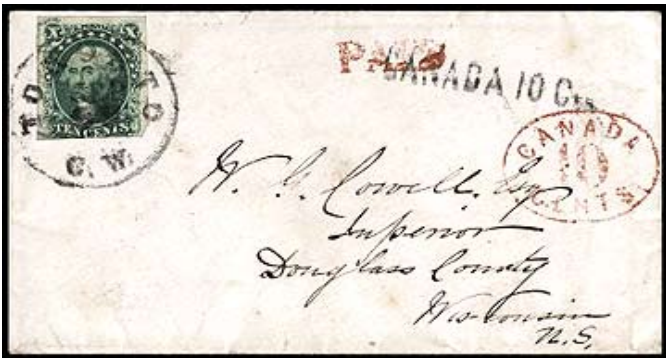 X X
TEN CENTS.
TORONTO
C. W.
PAID
CANADA 10 Cts.
CANADA
10
CENTS
W. G. Cowell. Esq
Superior
Douglass County
Wisconsin
U.S.